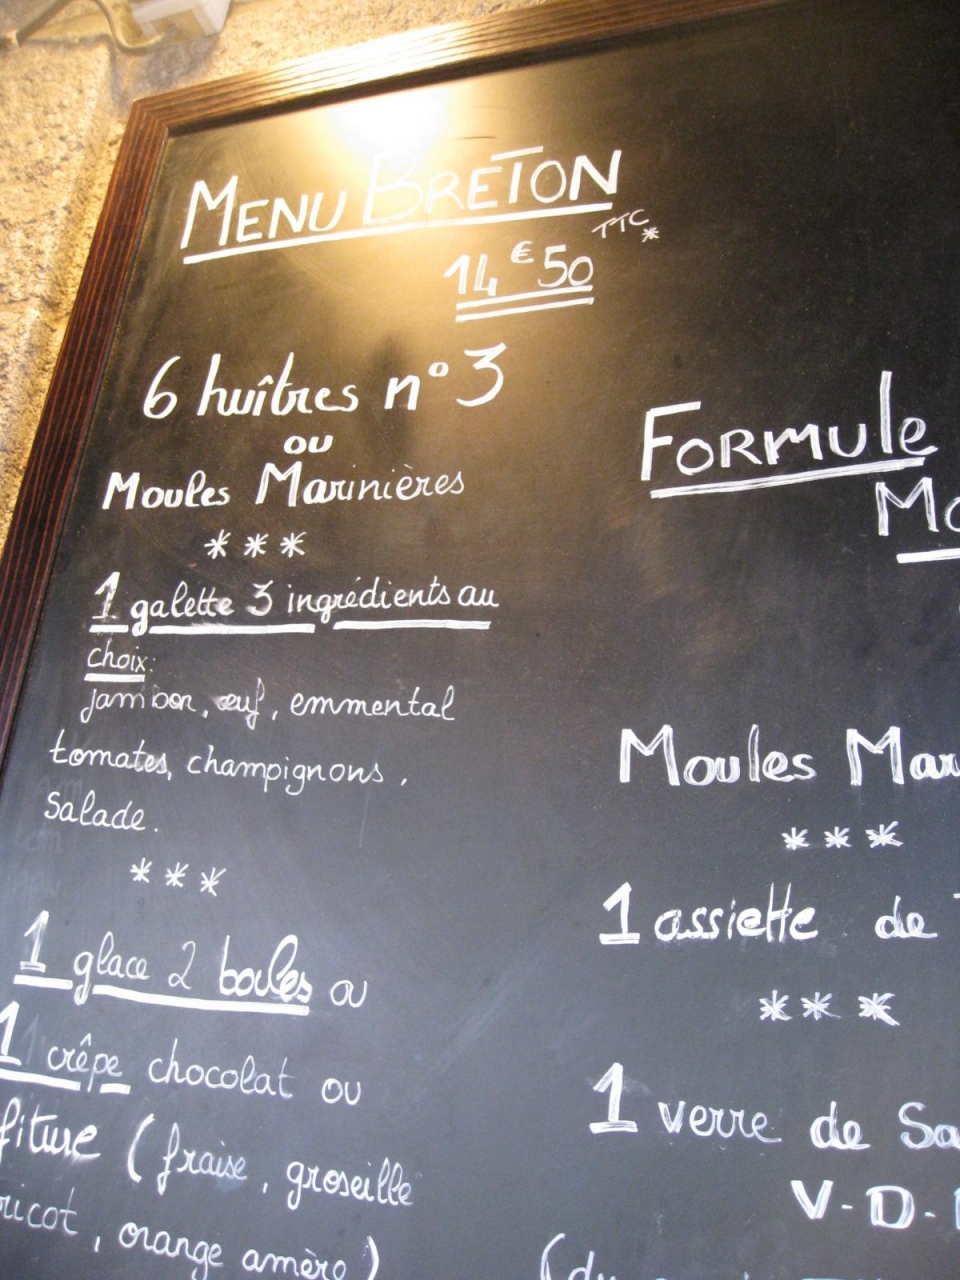 MENU BRETON
14 € 50 TTC *
6 huîtres n° 3
ou
Moules Marinières
* * *
1 galette 3 ingrédients au
choix:
jambon, œuf, emmental
tomates, champignons,
Salade.
* * *
1 glace 2 boules ou
1 crêpe chocolat ou
fiture (fraise, groseille
ricot, orange amère)
FORMULE
Mo
Moules Mar
* * *
1 assiette de
* * *
1 verre de Sa
V-D-
(du